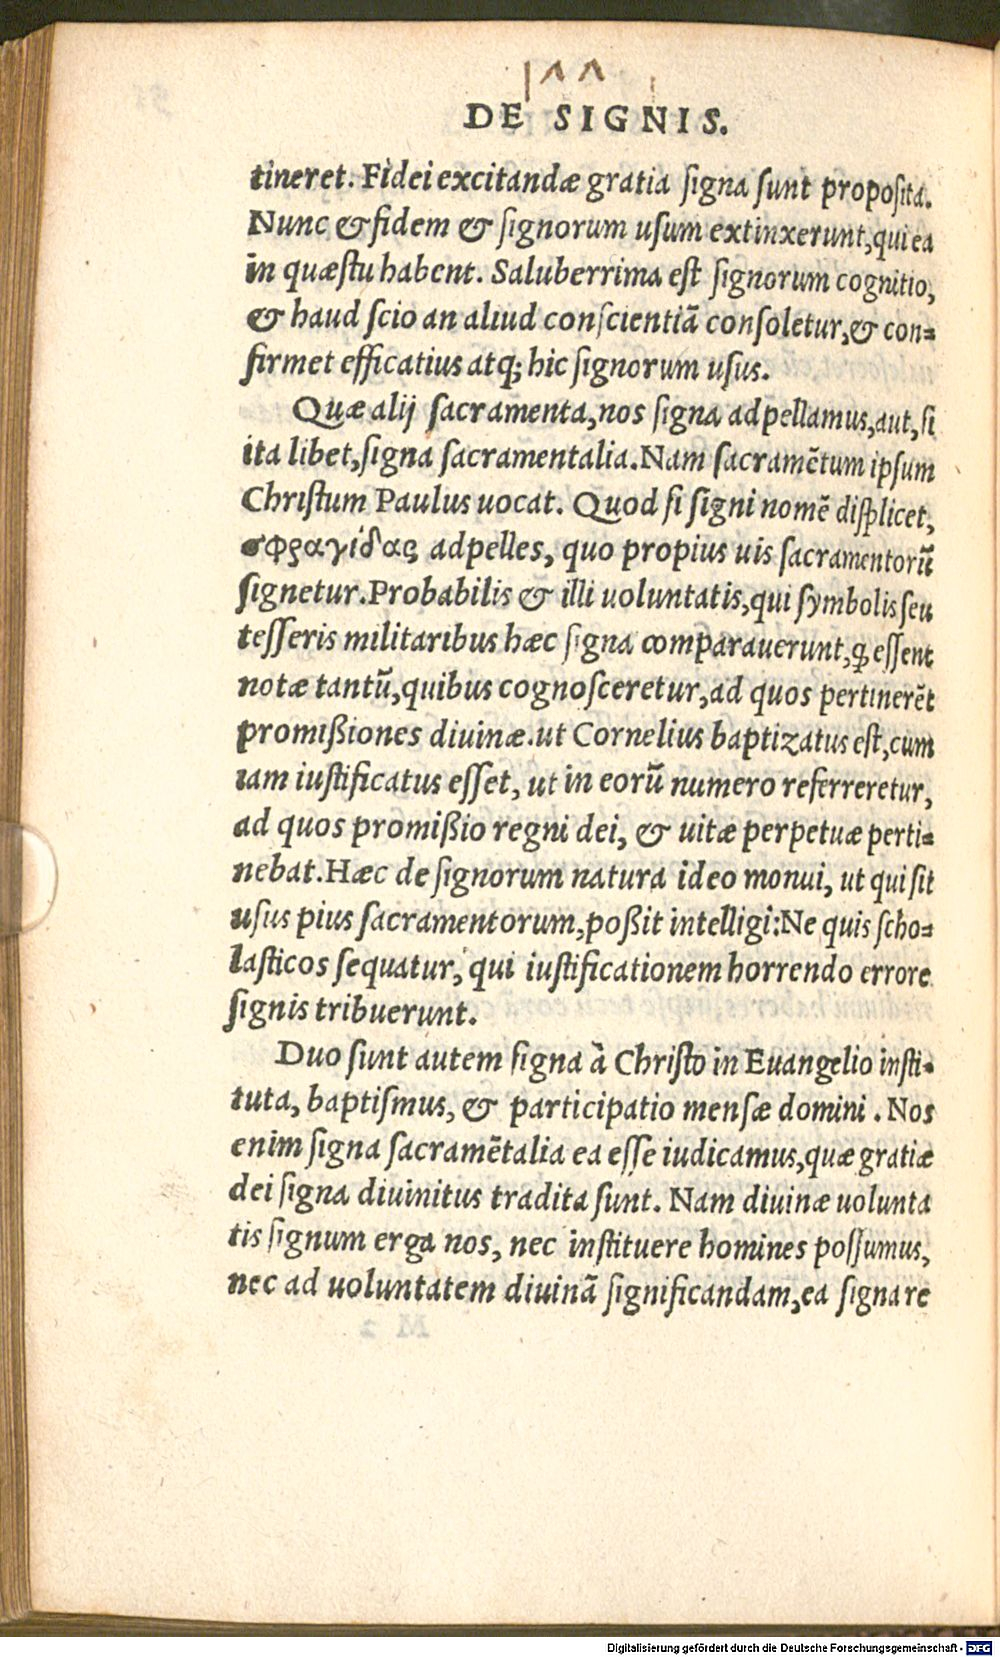 DE SIGNIS.
tineret. Fidei excitandæ gratia signa sunt proposita.
Nunc & fidem & signorum usum extinxerunt, qui ea
in quæstu habent. Saluberrima est signorum cognitio,
& haud scio an aliud conscientiã consoletur, & con=
firmet efficatius atq; hic signorum usus.
Quæ alij sacramenta, nos signa adpellamus, aut, si
ita libet, signa sacramentalia. Nam sacramẽtum ipsum
Christum Paulus uocat. Quod si signi nomẽ displicet,
σφραγίδας adpelles, quo propius uis sacramentorũ
signetur. Probabilis & illi uoluntatis, qui symbolis seu
tesseris militaribus hæc signa compararuerunt, ꝙ essent
notæ tantũ, quibus cognosceretur, ad quos pertinerẽt
promißiones diuinæ. ut Cornelius baptizatus est, cum
iam iustificatus esset, ut in eorũ numero referreretur,
ad quos promißio regni dei, & uitæ perpetuæ perti=
nebat. Hæc de signorum natura ideo monui, ut qui sit
usus pius sacramentorum, poßit intelligi: Ne quis scho=
lasticos sequatur, qui iustificationem horrendo errore
signis tribuerunt.
Duo sunt autem signa à Christo in Euangelio insti-
tuta, baptismus, & participatio mensæ domini. Nos
enim signa sacramẽtalia ea esse iudicamus, quæ gratiæ
dei signa diuinitus tradita sunt. Nam diuinæ uolunta
tis signum erga nos, nec instituere homines possumus,
nec ad uoluntatem diuinã significandam, ea signa re
Digitalisierung gefördert durch die Deutsche Forschungsgemeinschaft - DFG